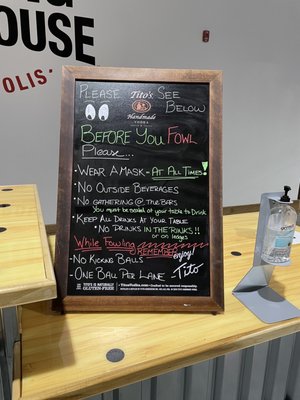 NG
HOUSE
POLIS
PLEASE SEE BELOW
Tito's
Handmade
VODKA
BEFORE YOU FOWL
Please...
- WEAR A MASK - AT ALL TIMES!
- NO OUTSIDE BEVERAGES
- NO GATHERING @ THE BARS
You must be seated at your table to Drink
- KEEP ALL DRINKS AT YOUR TABLE
- NO DRINKS IN THE RINKS!!
or on lanes
While Fowling
REMEMBER
- NO KICKING BALLS
- ONE BALL PER LANE
enjoy!
Tito
TITO'S IS NATURALLY
GLUTEN-FREE
TitosVodka.com